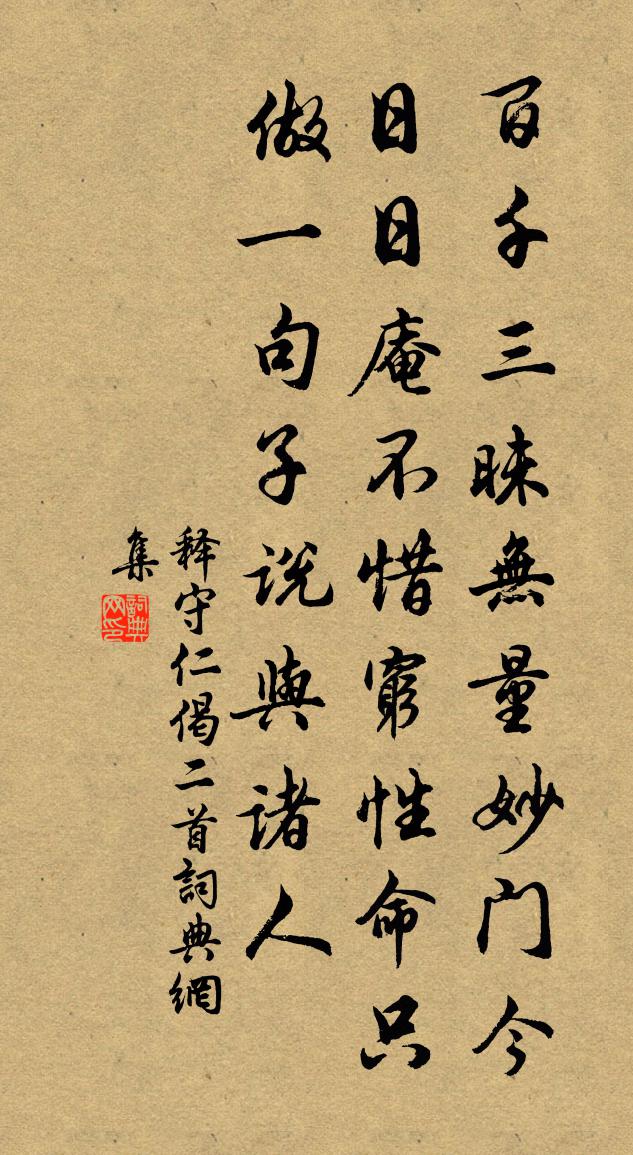 百千三昧無量妙门今
日日庵不惜窮性命只
做一句子说與諸人
释守仁偈二首詞典網
集
詞典網印